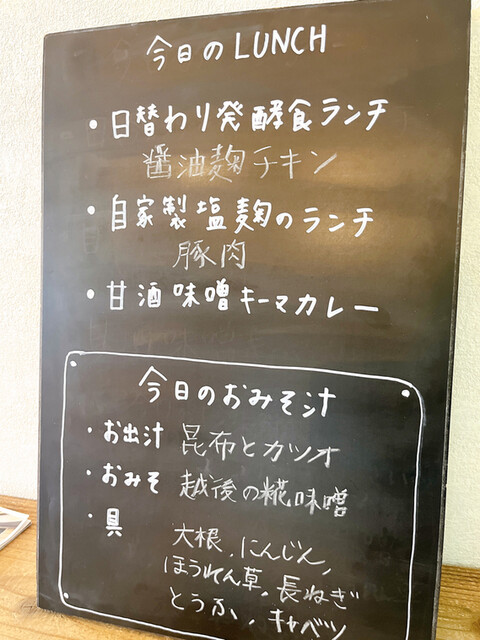 今日のLUNCH
・日替わり発酵食ランチ
醤油麹チキン
・自家製塩麹のランチ
豚肉
・甘酒味噌キーマカレー
今日のおみそ汁
・お出汁 昆布とカツオ
・おみそ 越後の糀味噌
・具
大根、にんじん、
ほうれん草、長ねぎ
とうふ、キャベツ